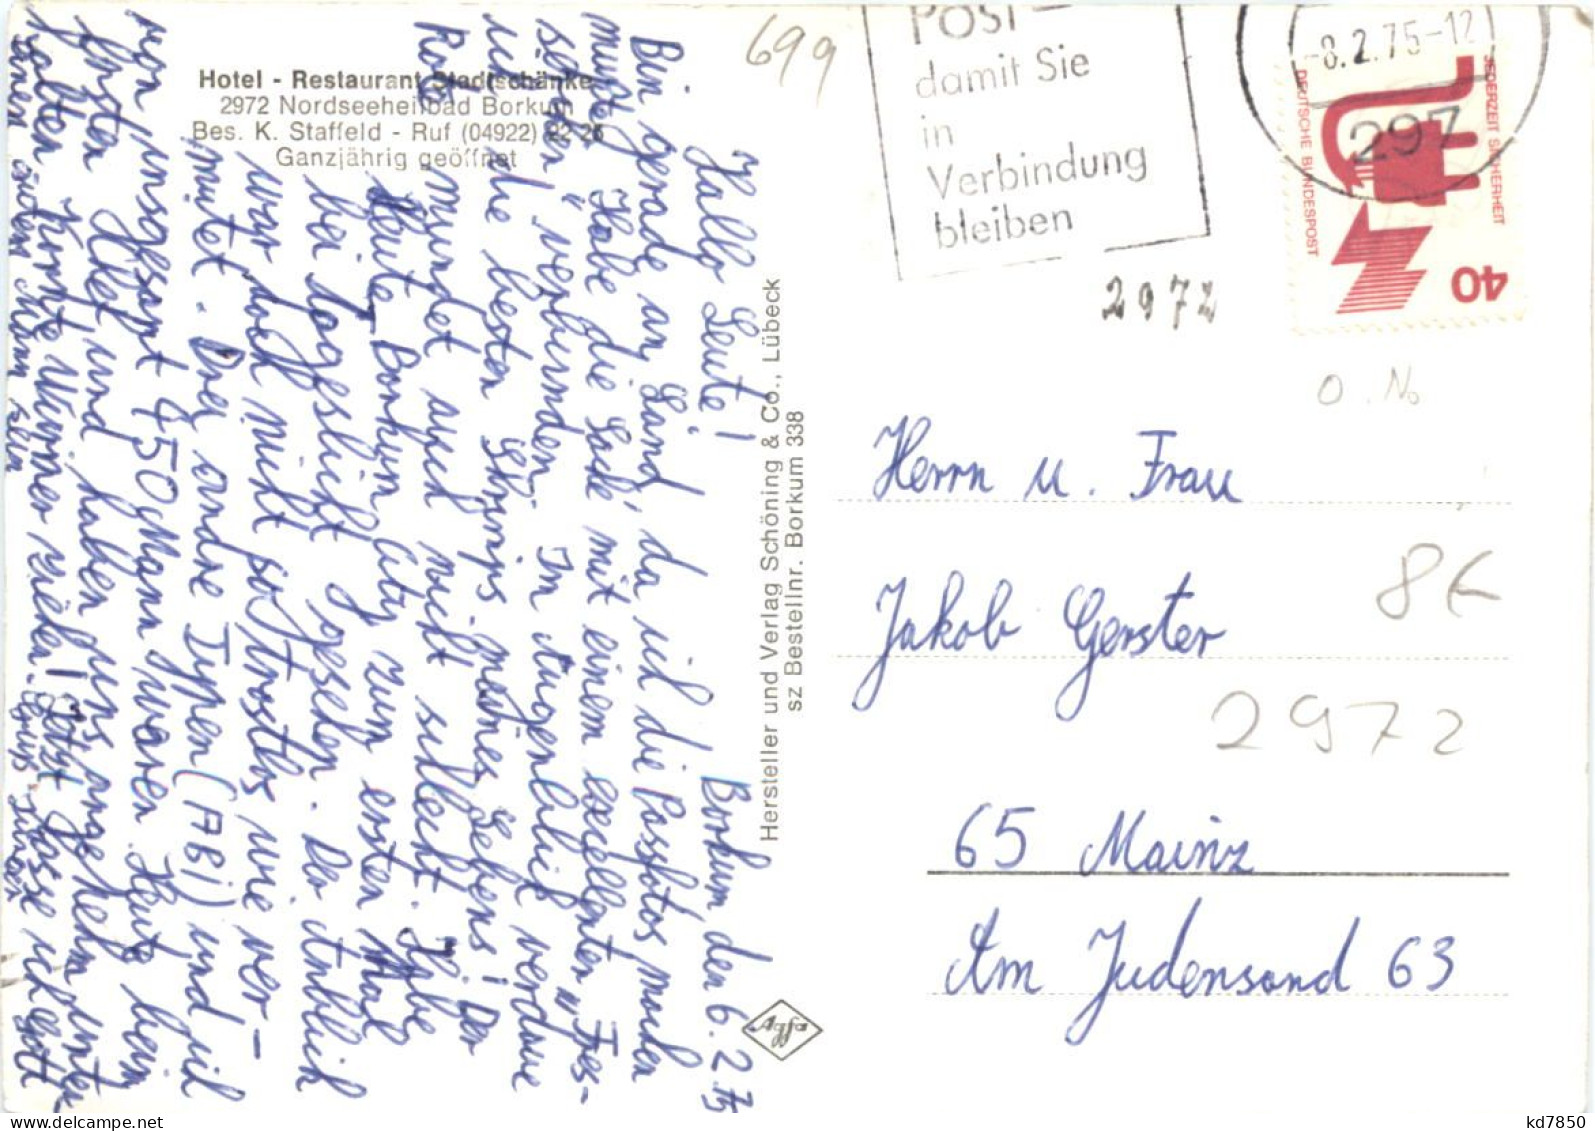 Hotel - Restaurant Stadtschänke
2972 Nordseeheilbad Borkum
Bes. K. Staffeld - Ruf (04922) 22 26
Ganzjährig geöffnet
Borkum den 6.2.75
Hallo Leute!
Bin gerade an Land, da ich die Passfotos machen
musste. Habe die Sache mit einem excellenten "Fres-
schen" verbunden. Im Augenblick verdaue
ich die besten Shrimps meines Lebens! Der
Rote mundet auch nicht schlecht. Habe
heute Borkum City zum ersten Mal
bei Tageslicht gesehen. Der Anblick
war doch nicht so trostlos wie ver-
mutet. Drei andre Typen (ABI) und ich
von insgesamt 450 Mann waren Heute beim
Chef und haben uns angenehm unter-
halten
Nummer ziehen! Jetzt
Mann sein
Gruß
Hersteller und Verlag Schöning & Co., Lübeck
sz Bestellnr. Borkum 338
Agfa
699
Post -
damit Sie
in
Verbindung
bleiben
-8.2.75-12
297
DEUTSCHE BUNDESPOST
JEDERZEIT SICHERHEIT
40
2972
O. No
Herrn u. Frau
Jakob Gerster
8€
2972
65 Mainz
Am Judensand 63
kd7850